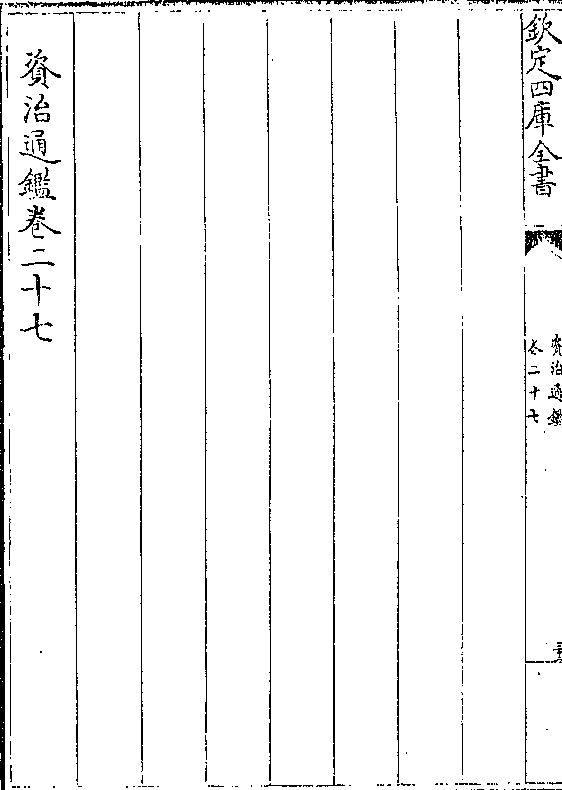 欽定四庫全書
資治通鑑
卷二十七
資治通鑑卷二十七